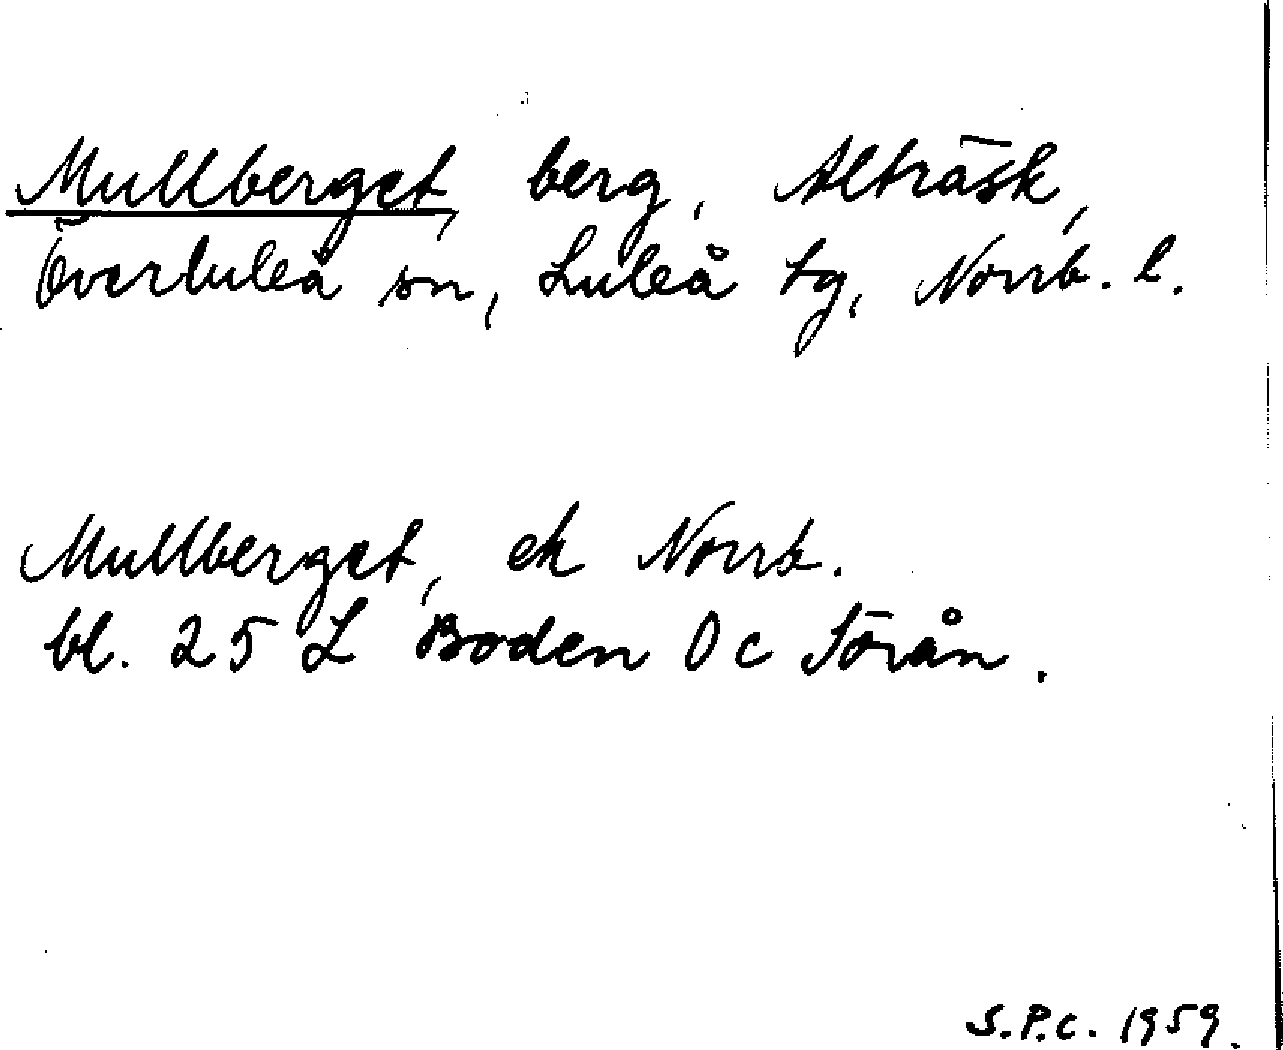 Mullberget, berg, Alträsk,
Överluleå sn, Luleå tg, Norrb. l.
Mullberget, ek Norrb.
bl. 25 L Boden 0 c Sörån.
S.P.C. 1959.